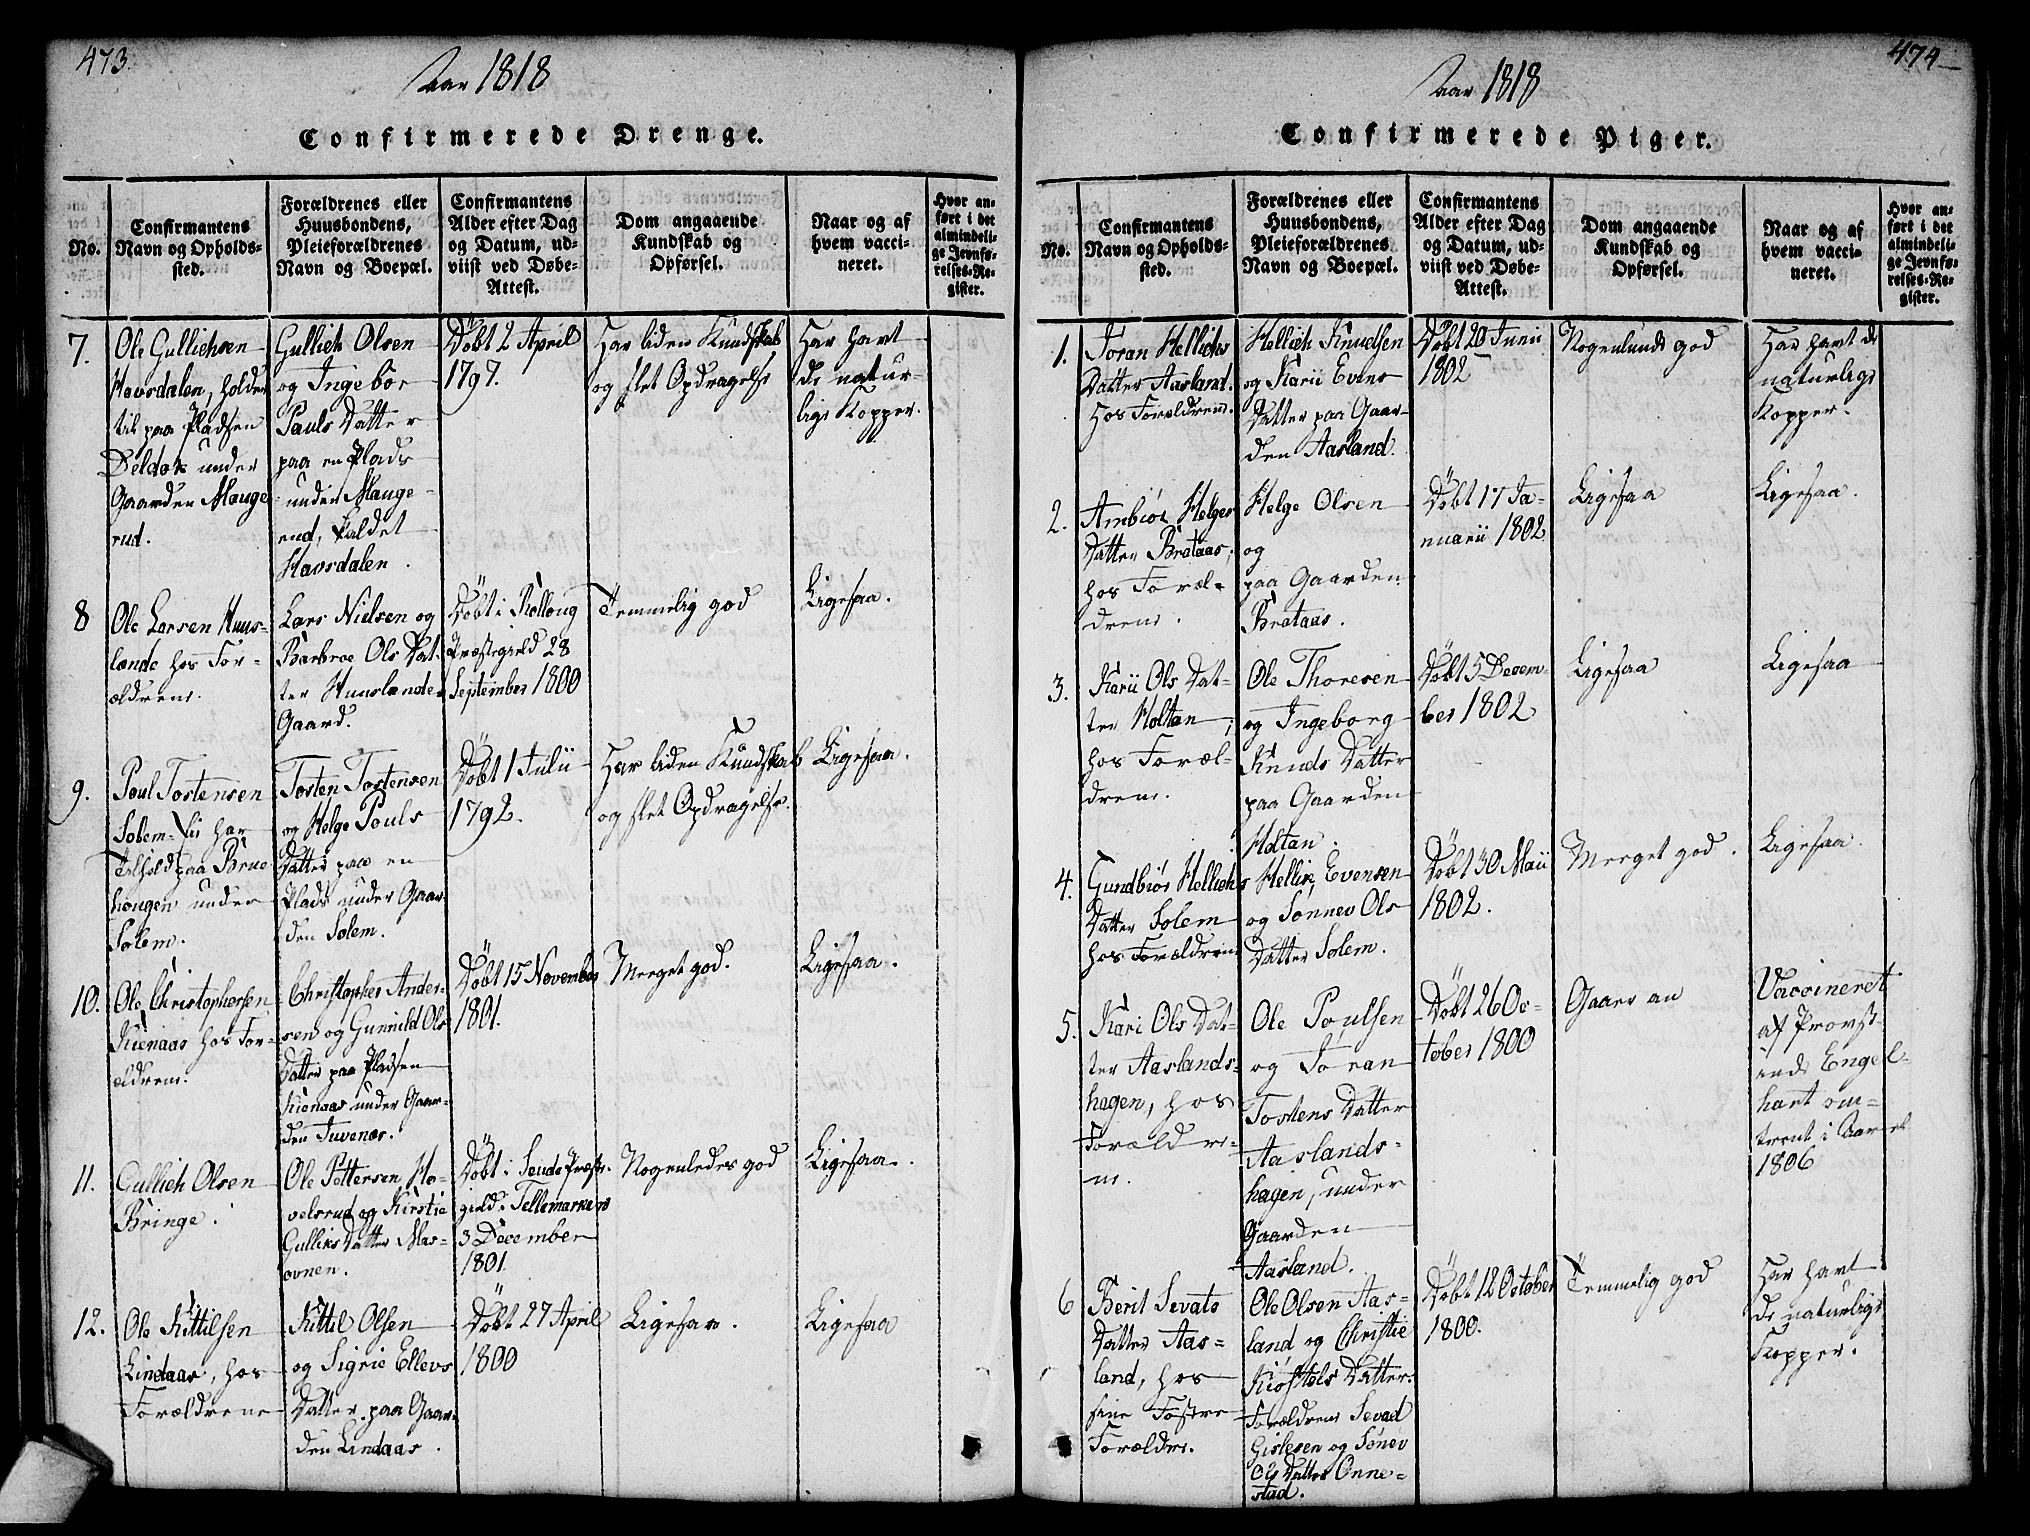 473.
Aar 1818
Confirmerede Drenge.
No.
Confirmantens
Navn og Opholds-
sted.
Forældrenes eller
Huusbondens,
Pleieforældrenes
Navn og Boepæl.
Confirmantens
Alder efter Dag
og Datum, ud-
viist ved Døbe-
Attest.
Dom angaaende
Kundskab og
Opførsel.
Naar og af
hvem vacci-
neret.
Hvor an-
ført i det
almindeli-
ge Jevnfø-
relses-Re-
gister.
7.
Ole Gullichsen
Havsdalen, holder
til paa Pladsen
Deldok under
Gaarden Mauge
rud.
Gullich Olsen
og Ingebor
Pauls Datter
paa en Plads
under Mauge-
rud, kaldet
Havsdalen.
Døbt 2 April
1797.
Har liden Kundskab
og slet Opdragelse
Har havt
de natur-
lige Kopper.
8
Ole Larsen Huus-
lande hos For-
ældrene.
Lars Nielsen og
Barbroe Ols Dat-
ter Huuslande
Gaard.
Døbt i Rolloug
Præstegield 28
September 1800
Temmelig god
Ligesaa.
9.
Poul Tostensen
Solem
Tilhold paa Brue
haugen under
Solem.
Tosten Tostensen
og Helge Pouls
Datter paa en
Plads under Gaar-
den Solem.
Døbt 1 Julii
1792.
Har liden Kundskab
og slet Opdragelse.
Ligesaa.
10.
Ole Christophersen
Kienaas hos For-
ældrene.
Christopher Ander-
sen og Gunnild Ols
Datter paa Pladsen
Kienaas under Gaar-
den Juvenæs.
Døbt 15 November
1801.
Meeget god.
Ligesaa.
11.
Gullich Olsen
Bringe.
Ole Pettersen Ho-
velsrud og Kirstie
Gulliks Datter Mas-
ovnen.
Døbt i Seude Præste-
gield i Tellemarken
3 December
1801.
Nogenledes god
Ligesaa.
12.
Ole Kittilsen
Lindaas, hos
Forældrene
Kittil Olsen
og Sigrie Ellevs
Datter paa Gaar-
den Lindaas.
Døbt 27 April
1800
Ligesaa.
Ligesaa
474
Aar 1818
Confirmerede Piger.
No.
Confirmantens
Navn og Opholds-
sted.
Forældrenes eller
Huusbondens,
Pleieforældrenes
Navn og Boepæl.
Confirmantens
Alder efter Dag
og Datum, ud-
viist ved Døbe-
Attest.
Dom angaaende
Kundskab og
Opførsel.
Naar og af
hvem vacci-
neret.
Hvor an-
ført i det
almindeli-
ge Jevnfø-
relses-Re-
gister.
1.
Joran Hellichs
Datter Aasland.
hos Forældrene.
Hellich Knudsen
og Karii Evens
Datter paa Gaar-
den Aasland.
Døbt 20 Junii
1802
Nogenlunde god
Har havt de
naturlige
Kopper.
2.
Ambiør Helges
Datter Brataas,
hos Foræl-
drene.
Helge Olsen
og
paa Gaarden
Brataas.
Døbt 17 Ja-
nuarii 1802.
Ligesaa
Ligesaa.
3.
Karii Ols Dat-
ter Holtan,
hos Foræl-
drene.
Ole Thoresen
og Ingeborg
Knuds Datter
paa Gaarden
Holtan.
Døbt 5 Decem-
ber 1802
Ligesaa
Ligesaa
4.
Gundbiør Hellichs
Datter Solem
hos Forældrene
Hellik Evensen
og Sønnev Ols
Datter Solem.
Døbt 30 Maii
1802.
Meeget god.
Ligesaa.
5.
Kari Ols Dat-
ter Aaslands-
hagen, hos
Forældre-
ne.
Ole Poulsen
og Joran
Tostens Datter
Aaslands-
hagen, under
Gaarden
Aasland.
Døbt 26 Oc-
tober 1800
Gaaer an
Vaccineret
af Provst-
inde Engel-
hart om-
trent i Aaret
1806
6
Berit Sevats
Datter Aas-
land, hos
sine Fostre
Forældre.
Ole Olsen Aas-
land og Christie
Kiostels Datter.
Forældrene Sevad
Gislesen og Sønev
Ols Datter Onne-
stad.
Døbt 12 October
1800.
Temmelig god
Har havt
de naturlige
Kopper.